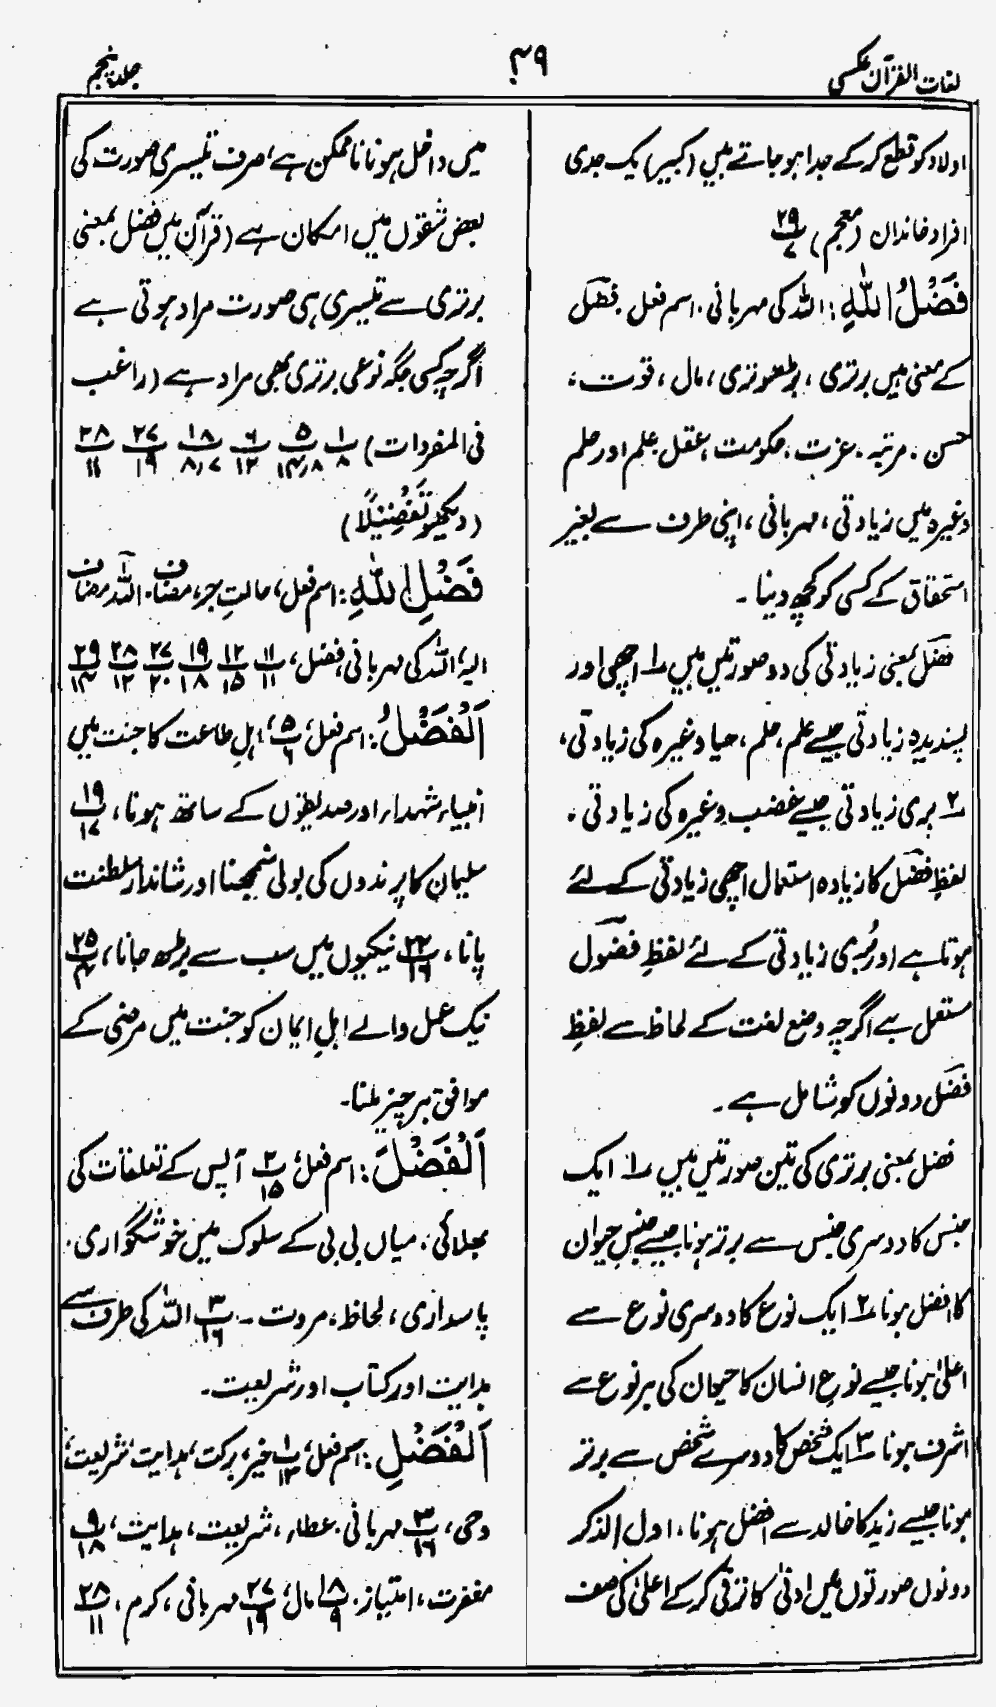 لغات القرآن عکسی
۴۹
جلد پنجم
اولاد کو قطع کرکے جدا ہو جاتے ہیں (کبیر) یک جدی
افراد خاندان (معجم) ۲۹/۷
فَضْلُ اللّٰہِ: اللہ کی مہربانی۔ اسم فعل۔ فضل
کے معنی ہیں برتری، بڑھوتری، مال، قوت،
حسن۔ مرتبہ۔ عزت۔ حکومت، عقل علم اور حلم
وغیرہ میں زیادتی، مہربانی، اپنی طرف سے بغیر
استحقاق کے کسی کو کچھ دینا۔
فضل بمعنی زیادتی کی دو صورتیں ہیں ۱ اچھی اور
پسندیدہ زیادتی جیسے علم، حلم، حیا وغیرہ کی زیادتی،
۲ بری زیادتی جیسے غضب وغیرہ کی زیادتی۔
لفظِ فضل کا زیادہ استعمال اچھی زیادتی کے لئے
ہوتا ہے اور بُری زیادتی کے لئے لفظِ فضول
مستعمل ہے اگرچہ وضع لغت کے لحاظ سے لفظِ
فضل دونوں کو شامل ہے۔
فضل بمعنی برتری کی تین صورتیں ہیں ۱ ایک
جنس کا دوسری جنس سے برتر ہونا جیسے جنسِ حیوان
کا افضل ہونا ۲ ایک نوع کا دوسری نوع سے
اعلیٰ ہونا جیسے نوعِ انسان کا حیوان کی ہر نوع سے
اشرف ہونا ۳ ایک شخص کا دوسرے شخص سے برتر
ہونا جیسے زید کا خالد سے افضل ہونا۔ اول الذکر
دونوں صورتوں میں ادنیٰ کا ترقی کرکے اعلیٰ کی صف
میں داخل ہونا ناممکن ہے، صرف تیسری صورت کی
بعض شقوں میں امکان ہے (قرآن میں فضل بمعنی
برتری سے تیسری ہی صورت مراد ہوتی ہے
اگرچہ کسی جگہ نوعی برتری بھی مراد ہے (راغب
فی المفردات) ۱/۸ ۵/۱۴،۸ ۶/۱۲ ۱۸/۸،۷ ۲۷/۱۹ ۲۸/۱۱
(دیکھو تَفْضِیْلًا)
فَضْلِ اللّٰہِ: اسم فعل، حالتِ جر، مضاف۔ اللّٰہ مضاف
الیہ، اللّٰہ کی مہربانی، فضل، ۱۱/۱۱ ۱۲/۱۵ ۱۹/۱۸ ۲۷/۲۰ ۲۸/۱۲ ۲۹/۱۴
اَلْفَضْلُ: اسم فعل، ۵/۶، اہلِ طاعت کا جنت میں
انبیاء شہداء اور صدیقوں کے ساتھ ہونا، ۱۹/۱۷
سلیمان کا پرندوں کی بولی سمجھنا اور شاندار سلطنت
پانا، ۲۲/۱۶ نیکیوں میں سب سے بڑھ جانا، ۲۵/۴
نیک عمل والے اہلِ ایمان کو جنت میں مرضی کے
موافق ہر چیز ملنا۔
اَلْفَضْلَ: اسم فعل، ۲/۱۵ آپس کے تعلقات کی
بھلائی۔ میاں بی بی کے سلوک میں خوشگواری۔
پاسداری، لحاظ، مروت۔ ۳/۱۶ اللّٰہ کی طرف سے
ہدایت اور کتاب اور شریعت۔
اَلْفَضْلِ: اسم فعل، ۱/۱۳ خیر، برکت، ہدایت، شریعت،
وحی، ۳/۱۶ مہربانی۔ عطاء، شریعت، ہدایت، ۹/۱۸
مغفرت، امتیاز۔ ۱۸/۹ مال، ۲۷/۱۹ مہربانی، کرم، ۲۸/۱۱